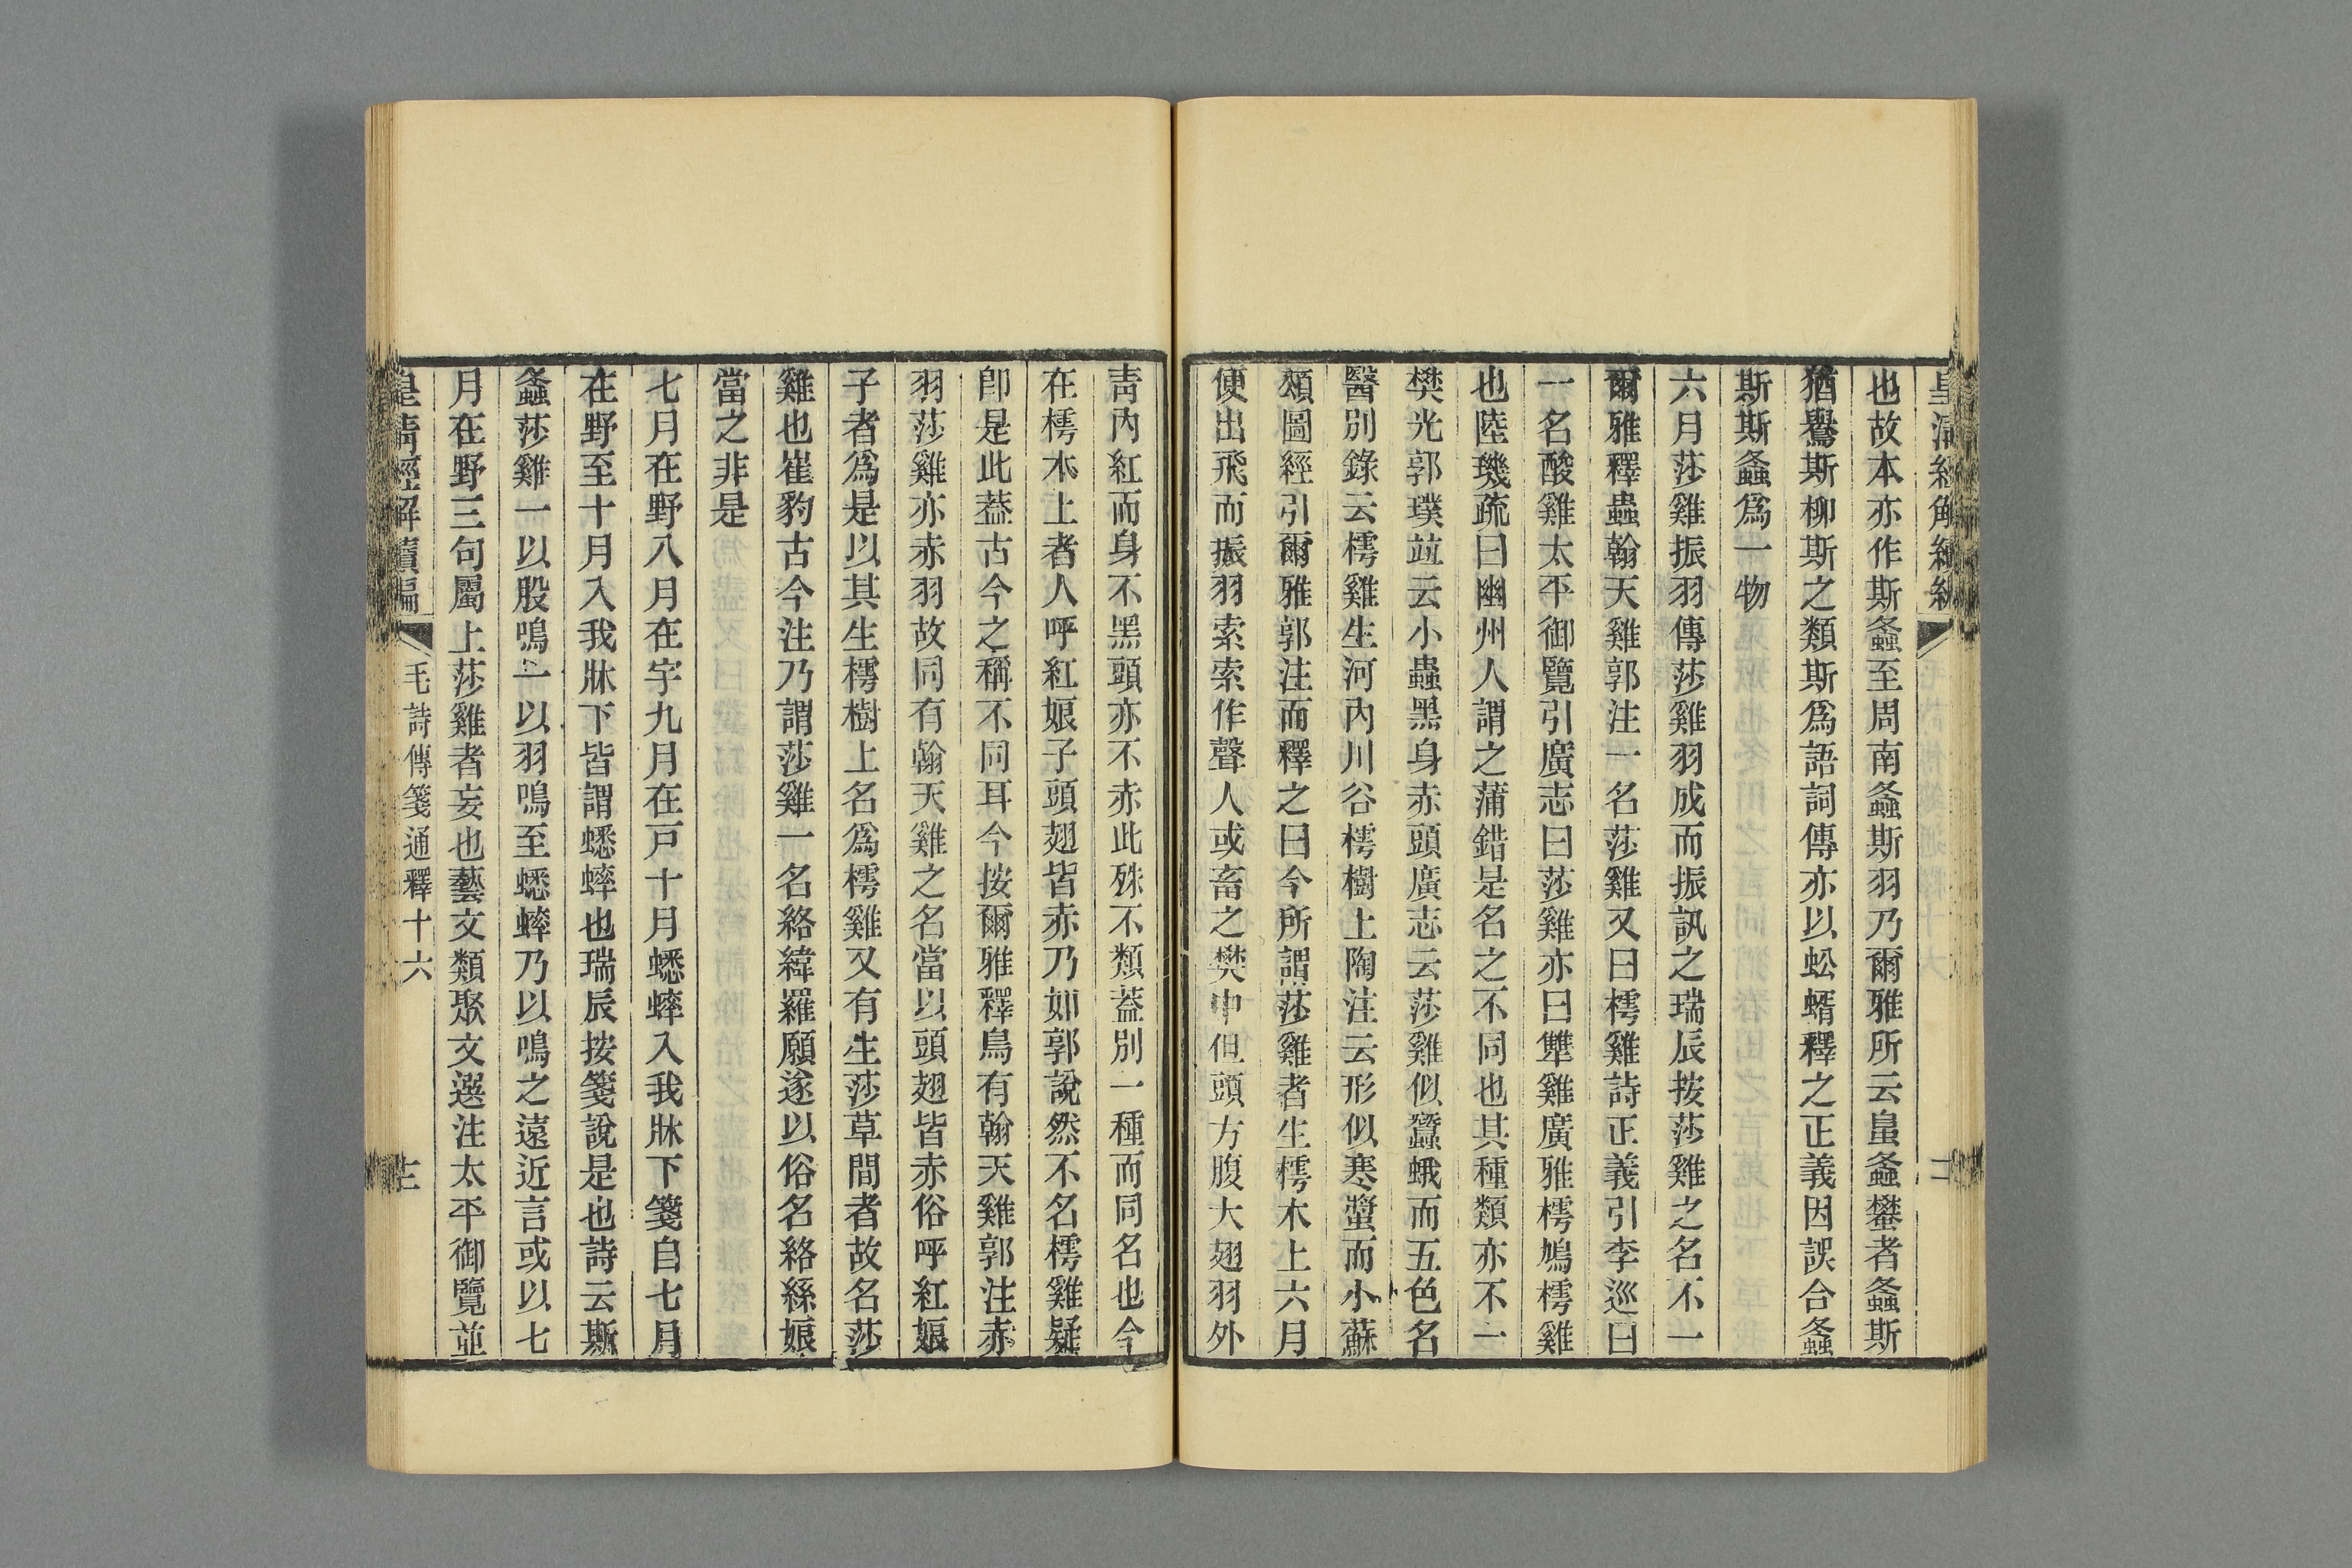 也故本亦作斯螽至周南螽斯羽乃爾雅所云蜤螽蠜者螽斯
猶鸒斯柳斯之類斯爲語詞傳亦以蚣蝑釋之正義因誤合螽
斯斯螽爲一物
六月莎雞振羽傳莎雞羽成而振訊之瑞辰按莎雞之名不一
爾雅釋蟲翰天雞郭注一名莎雞又曰樗雞詩正義引李巡曰
一名酸雞太平御覽引廣志曰莎雞亦曰犨雞廣雅樗鳩樗雞
也陸璣疏曰幽州人謂之蒲錯是名之不同也其種類亦不一
樊光郭璞竝云小蟲黑身赤頭廣志云莎雞似蠶蛾而五色名
醫別錄云樗雞生河內川谷樗樹上陶注云形似寒螿而小蘇
頌圖經引爾雅郭注而釋之曰今所謂莎雞者生樗木上六月
便出飛而振羽索索作聲人或畜之樊中但頭方腹大翅羽外
靑內紅而身不黑頭亦不赤此殊不類葢別一種而同名也今
在樗木上者人呼紅娘子頭翅皆赤乃如郭說然不名樗雞疑
卽是此葢古今之稱不同耳今按爾雅釋鳥有翰天雞郭注赤
羽莎雞亦赤羽故同有翰天雞之名當以頭翅皆赤俗呼紅娘
子者爲是以其生樗樹上名爲樗雞又有生莎草間者故名莎
雞也崔豹古今注乃謂莎雞一名絡緯羅願遂以俗名絡絲娘
當之非是
七月在野八月在宇九月在戸十月蟋蟀入我牀下箋自七月
在野至十月入我牀下皆謂蟋蟀也瑞辰按箋說是也詩云斯
螽莎雞一以股鳴一以羽鳴至蟋蟀乃以鳴之遠近言或以七
月在野三句屬上莎雞者妄也藝文類聚文選注太平御覽並
皇淸經解續編
毛詩傳箋通釋十六